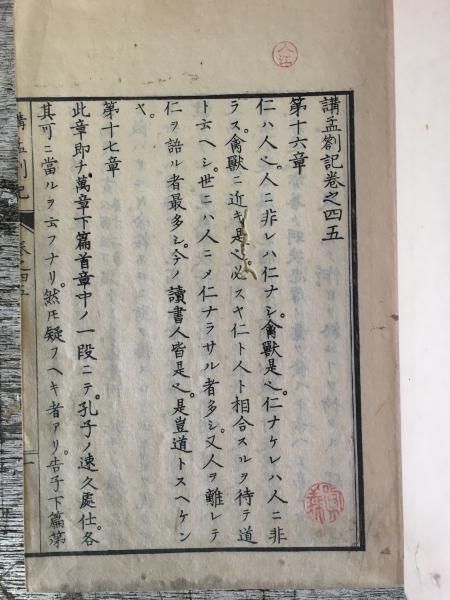 講孟劄記卷之四五
第十六章
仁ハ人也。人ニ非レハ仁ナシ。禽獸是也。仁ナケレハ人ニ非
ラス。禽獸ニ近キ是也。必スヤ仁ト人ト相合スルヲ待テ道
ト云ヘシ。世ニハ人ニ〆仁ナラサル者多シ。又人ヲ離レテ
仁ヲ語ル者最多シ。今ノ讀書人皆是也。是豈道トスヘケン
ヤ。
第十七章
此章即チ萬章下篇首章中ノ一段ニテ。孔子ノ速久處仕。各
其可ニ當ルヲ云フナリ。然𪜈疑フヘキ者アリ。告子下篇第
講孟劄記
卷之四五